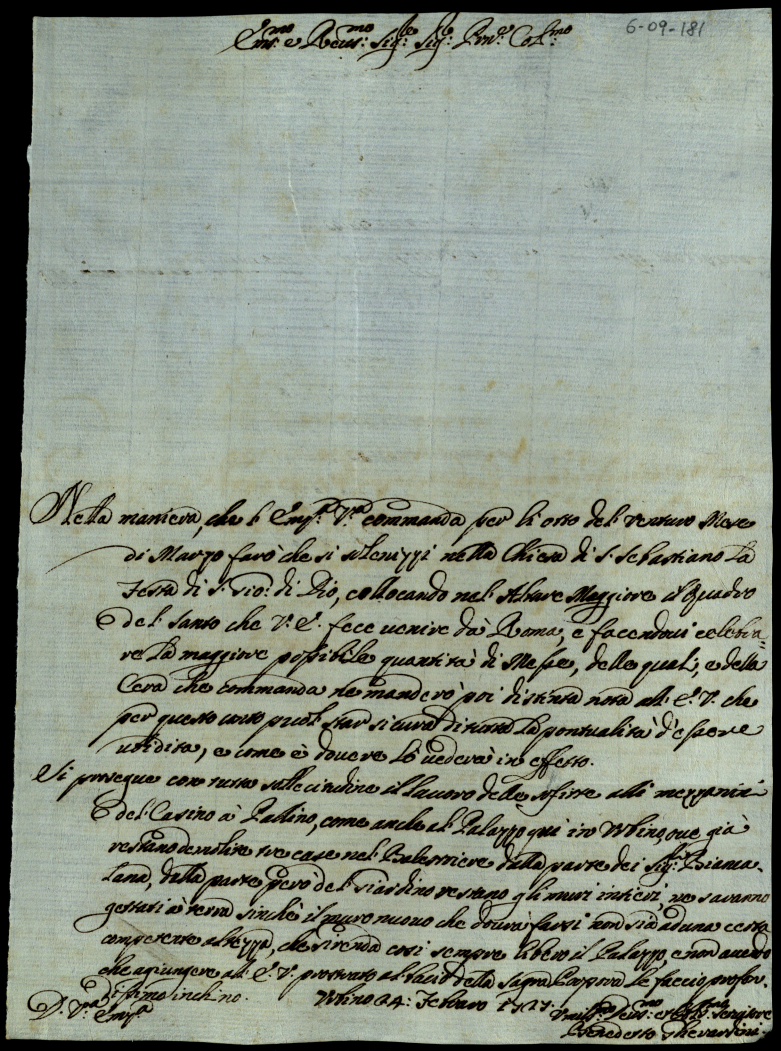 6-09-181
Em:mo e Reu:mo Sig:r Sig:r Pron:e Col:mo
Nella maniera, che l'Em:za V:ra commanda per li otto del venturo Mese
di Marzo farò che si solenizzi nella Chiesa di S. Sebastiano la
Festa di S. Gio: di Dio, collocando nel Altare Maggiore il Quadro
del Santo che V. E. fece uenire dà Roma, e facendoui celebra=
re la maggiore possibile quantità di Messe, delle quali, e della
Cera che commanda ne manderò poi distinta nota all' E. V. che
per questo conto puol star sicura di tutta la pontualità d'essere
ubidita, e come è douere lo uederà in effetto.
Si prosegue con tutta sollecitudine il lauoro delle soffitte alli mezzanini
del Casino à Pallino, come anche al Palazzo qui in Urbino, oue già
restano demolite tre case nel Balestriere dalla parte dei Sig:ri Bianca-
lana, dalla parte però del Giardino restano gli muri intieri, ne saranno
gettati à terra sinche il muro nuouo che dourà farsi non sia ad una certa
competente altezza, che si renda così sempre libero il Palazzo, e non auendo
che agiungere all' E. V. prostrato al bacio della Sagra Porpora le faccio profon-
dissimo inchino. Urbino 24: Febraro 1727.
D. V:ra Em:za
Benedetto Gherardini